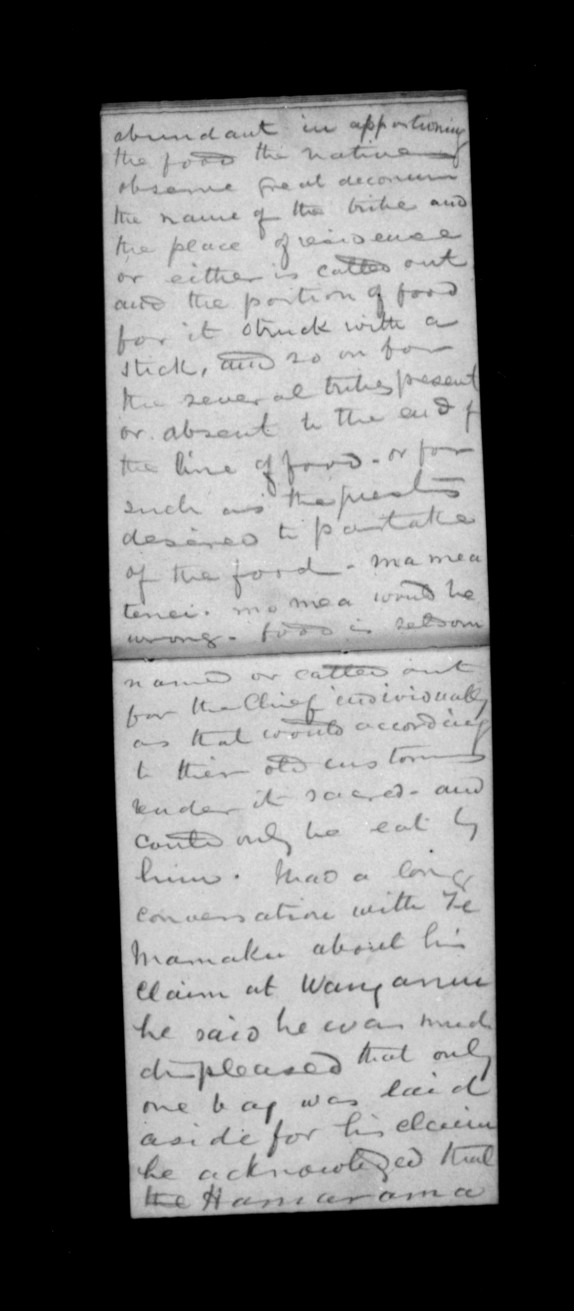 abundant in apportioning
the food the natives
observe great decorum
the name of the tribe and
the place of residence
or either is called out
and the portion of food
for it struck with a
stick, and so on for
the several tribes present
or absent to the end of
the line of food - or for
such as the priests
desired to partake
of the food - ma mea
tenei. mo mea would be
wrong - food is seldom
named or called out
for the Chief individually
as that would according
to their old customs
render it sacred - and
could only be eat by
him. Had a long
conversation with Te
Mamaku about his
Claim at Wanganui
he said he was much
displeased that only
one bag was laid
aside for his claim
he acknowledged that
the Hamarama